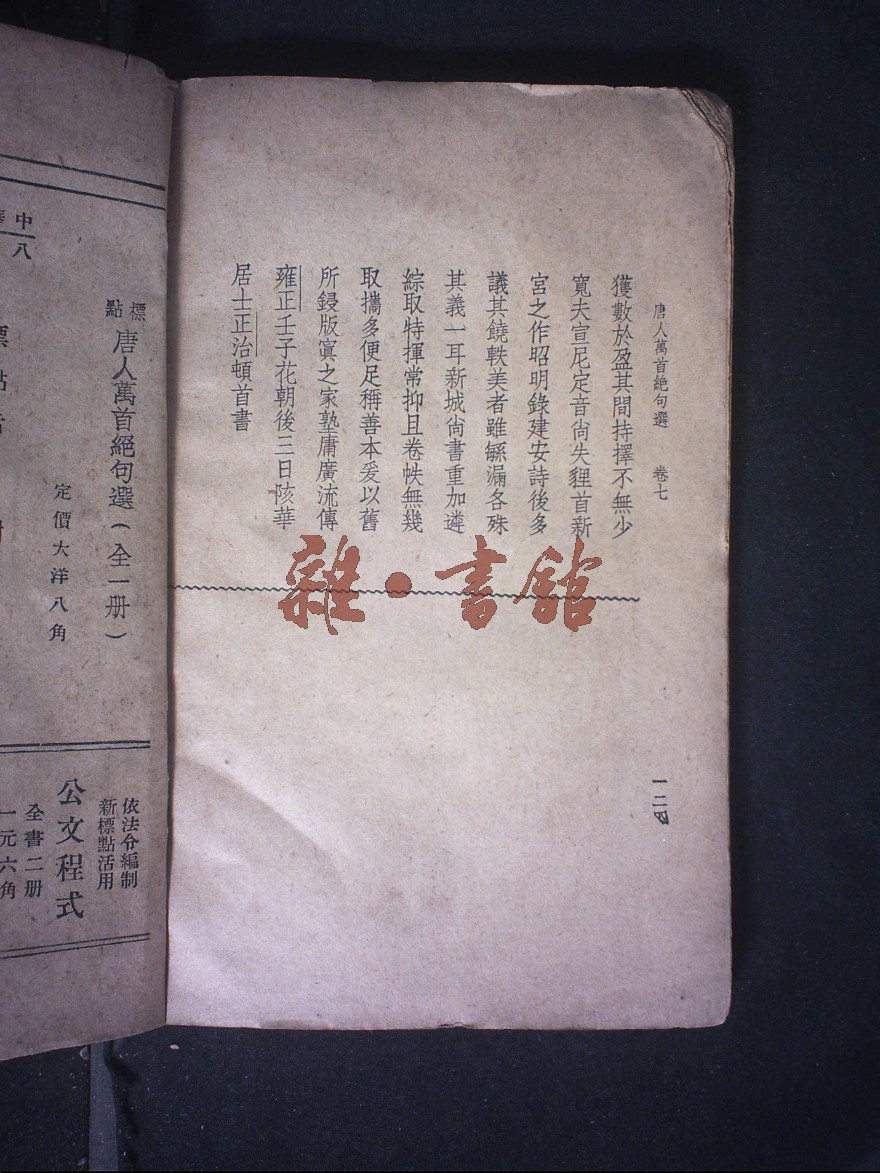 唐人萬首絕句選 卷七
獲數於盈其間持擇不無少
寬夫宣尼定音尙失貍首新
宮之作昭明錄建安詩後多
議其饒軼美者雖繇漏各殊
其義一耳新城尙書重加遴
綜取特揮常抑且卷帙無幾
取攜多便足稱善本爰以舊
所鋟版寘之家塾庸廣流傳
雍正壬子花朝後三日陔華
居士正治頓首書
一二四
雜・書館
標點
唐人萬首絕句選（全一册）
定價大洋八角
中
八
依法令編制
新標點活用
公文程式
全書二册
一元六角